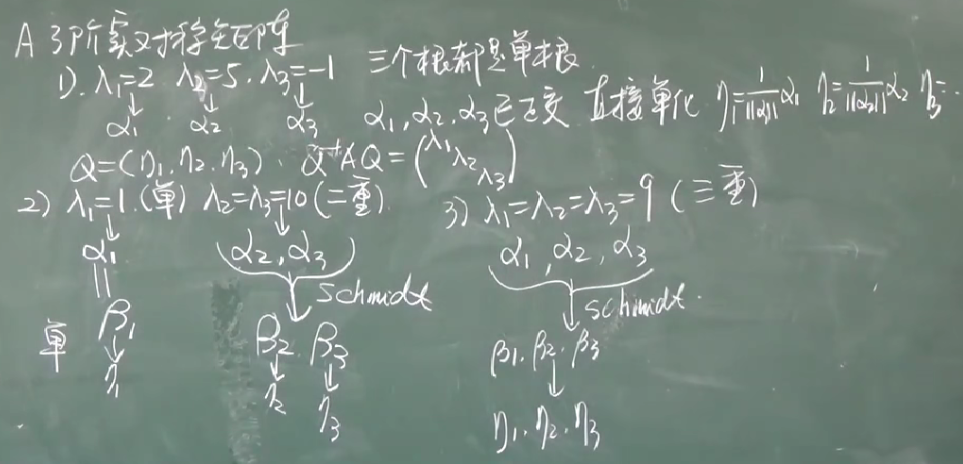 A 3阶实对称矩阵
1). λ₁=2 λ₂=5. λ₃=-1 三个根都是单根.
↓ ↓ ↓
α₁ α₂ α₃ α₁, α₂, α₃已正交 直接单化 η₁=1/||α₁|| α₁ η₂=1/||α₂|| α₂ η₃=..
Q=(η₁, η₂, η₃). Q⁻¹AQ=(λ₁ λ₂ λ₃)
2) λ₁=1.(单) λ₂=λ₃=10(二重).
↓ ↓
α₁ α₂, α₃
|| ↓ schmidt
单 β₁ β₂. β₃
↓ ↓ ↓
η₁ η₂ η₃
3) λ₁=λ₂=λ₃=9 (三重)
α₁, α₂, α₃
↓ schmidt.
β₁. β₂. β₃
↓
η₁. η₂. η₃